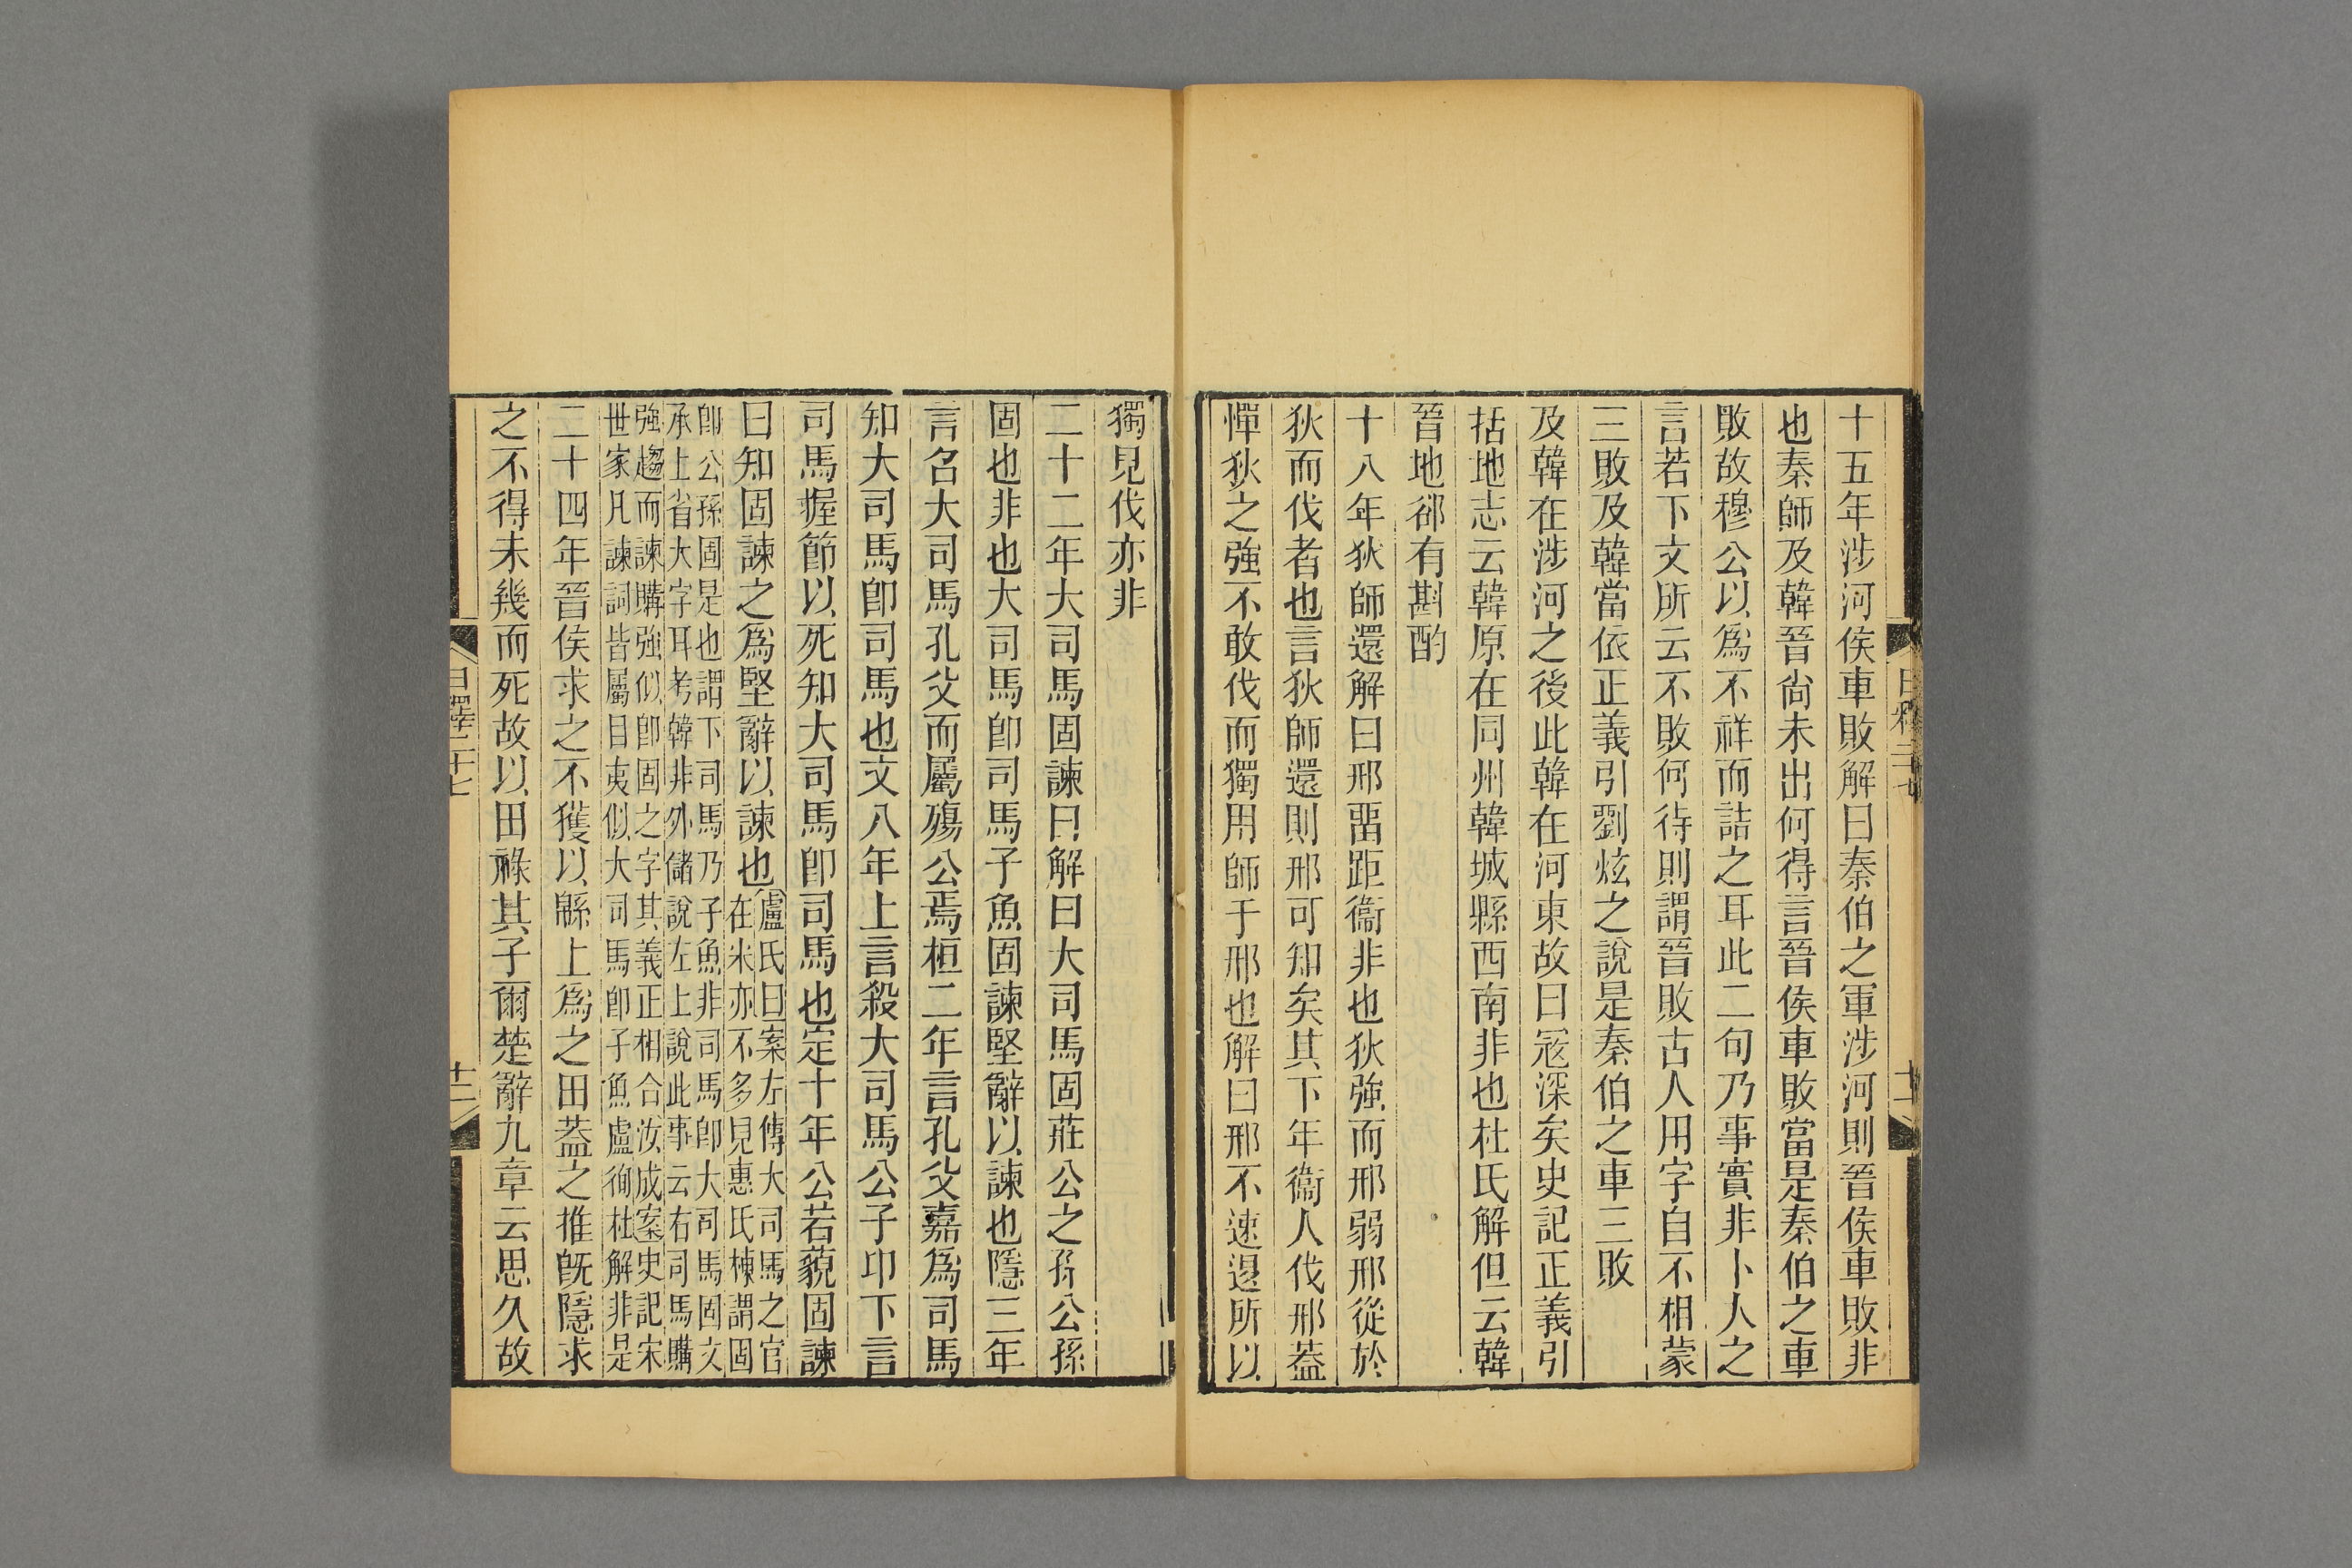 十五年涉河侯車敗解曰秦伯之軍涉河則晉侯車敗非
也秦師及韓晉尚未出何得言晉侯車敗當是秦伯之車
敗故穆公以爲不祥而詰之耳此二句乃事實非卜人之
言若下文所云不敗何待則謂晉敗古人用字自不相蒙
三敗及韓當依正義引劉炫之說是秦伯之車三敗
及韓在涉河之後此韓在河東故曰寇深矣史記正義引
括地志云韓原在同州韓城縣西南非也杜氏解但云韓
晉地郤有斟酌
十八年狄師還解曰邢畱距衞非也狄強而邢弱邢從於
狄而伐者也言狄師還則邢可知矣其下年衞人伐邢葢
憚狄之強不敢伐而獨用師于邢也解曰邢不速退所以
獨見伐亦非
二十二年大司馬固諫曰解曰大司馬固莊公之孫公孫
固也非也大司馬卽司馬子魚固諫堅辭以諫也隱三年
言召大司馬孔父而屬殤公焉桓二年言孔父嘉爲司馬
知大司馬卽司馬也文八年上言殺大司馬公子卬下言
司馬握節以死知大司馬卽司馬也定十年公若藐固諫
曰知固諫之爲堅辭以諫也
盧氏曰案左傳大司馬之官
在宋亦不多見惠氏棟謂固
卽公孫固是也謂下司馬乃子魚非司馬卽大司馬固文
承上省大字耳考韓非外儲說左上說此事云右司馬購
強趨而諫購強似卽固之字其義正相合汝成案史記宋
世家凡諫詞皆屬目夷似大司馬卽子魚盧徇杜解非是
二十四年晉侯求之不獲以緜上爲之田葢之推旣隱求
之不得未幾而死故以田祿其子爾楚辭九章云思久故
日釋二十七
十二